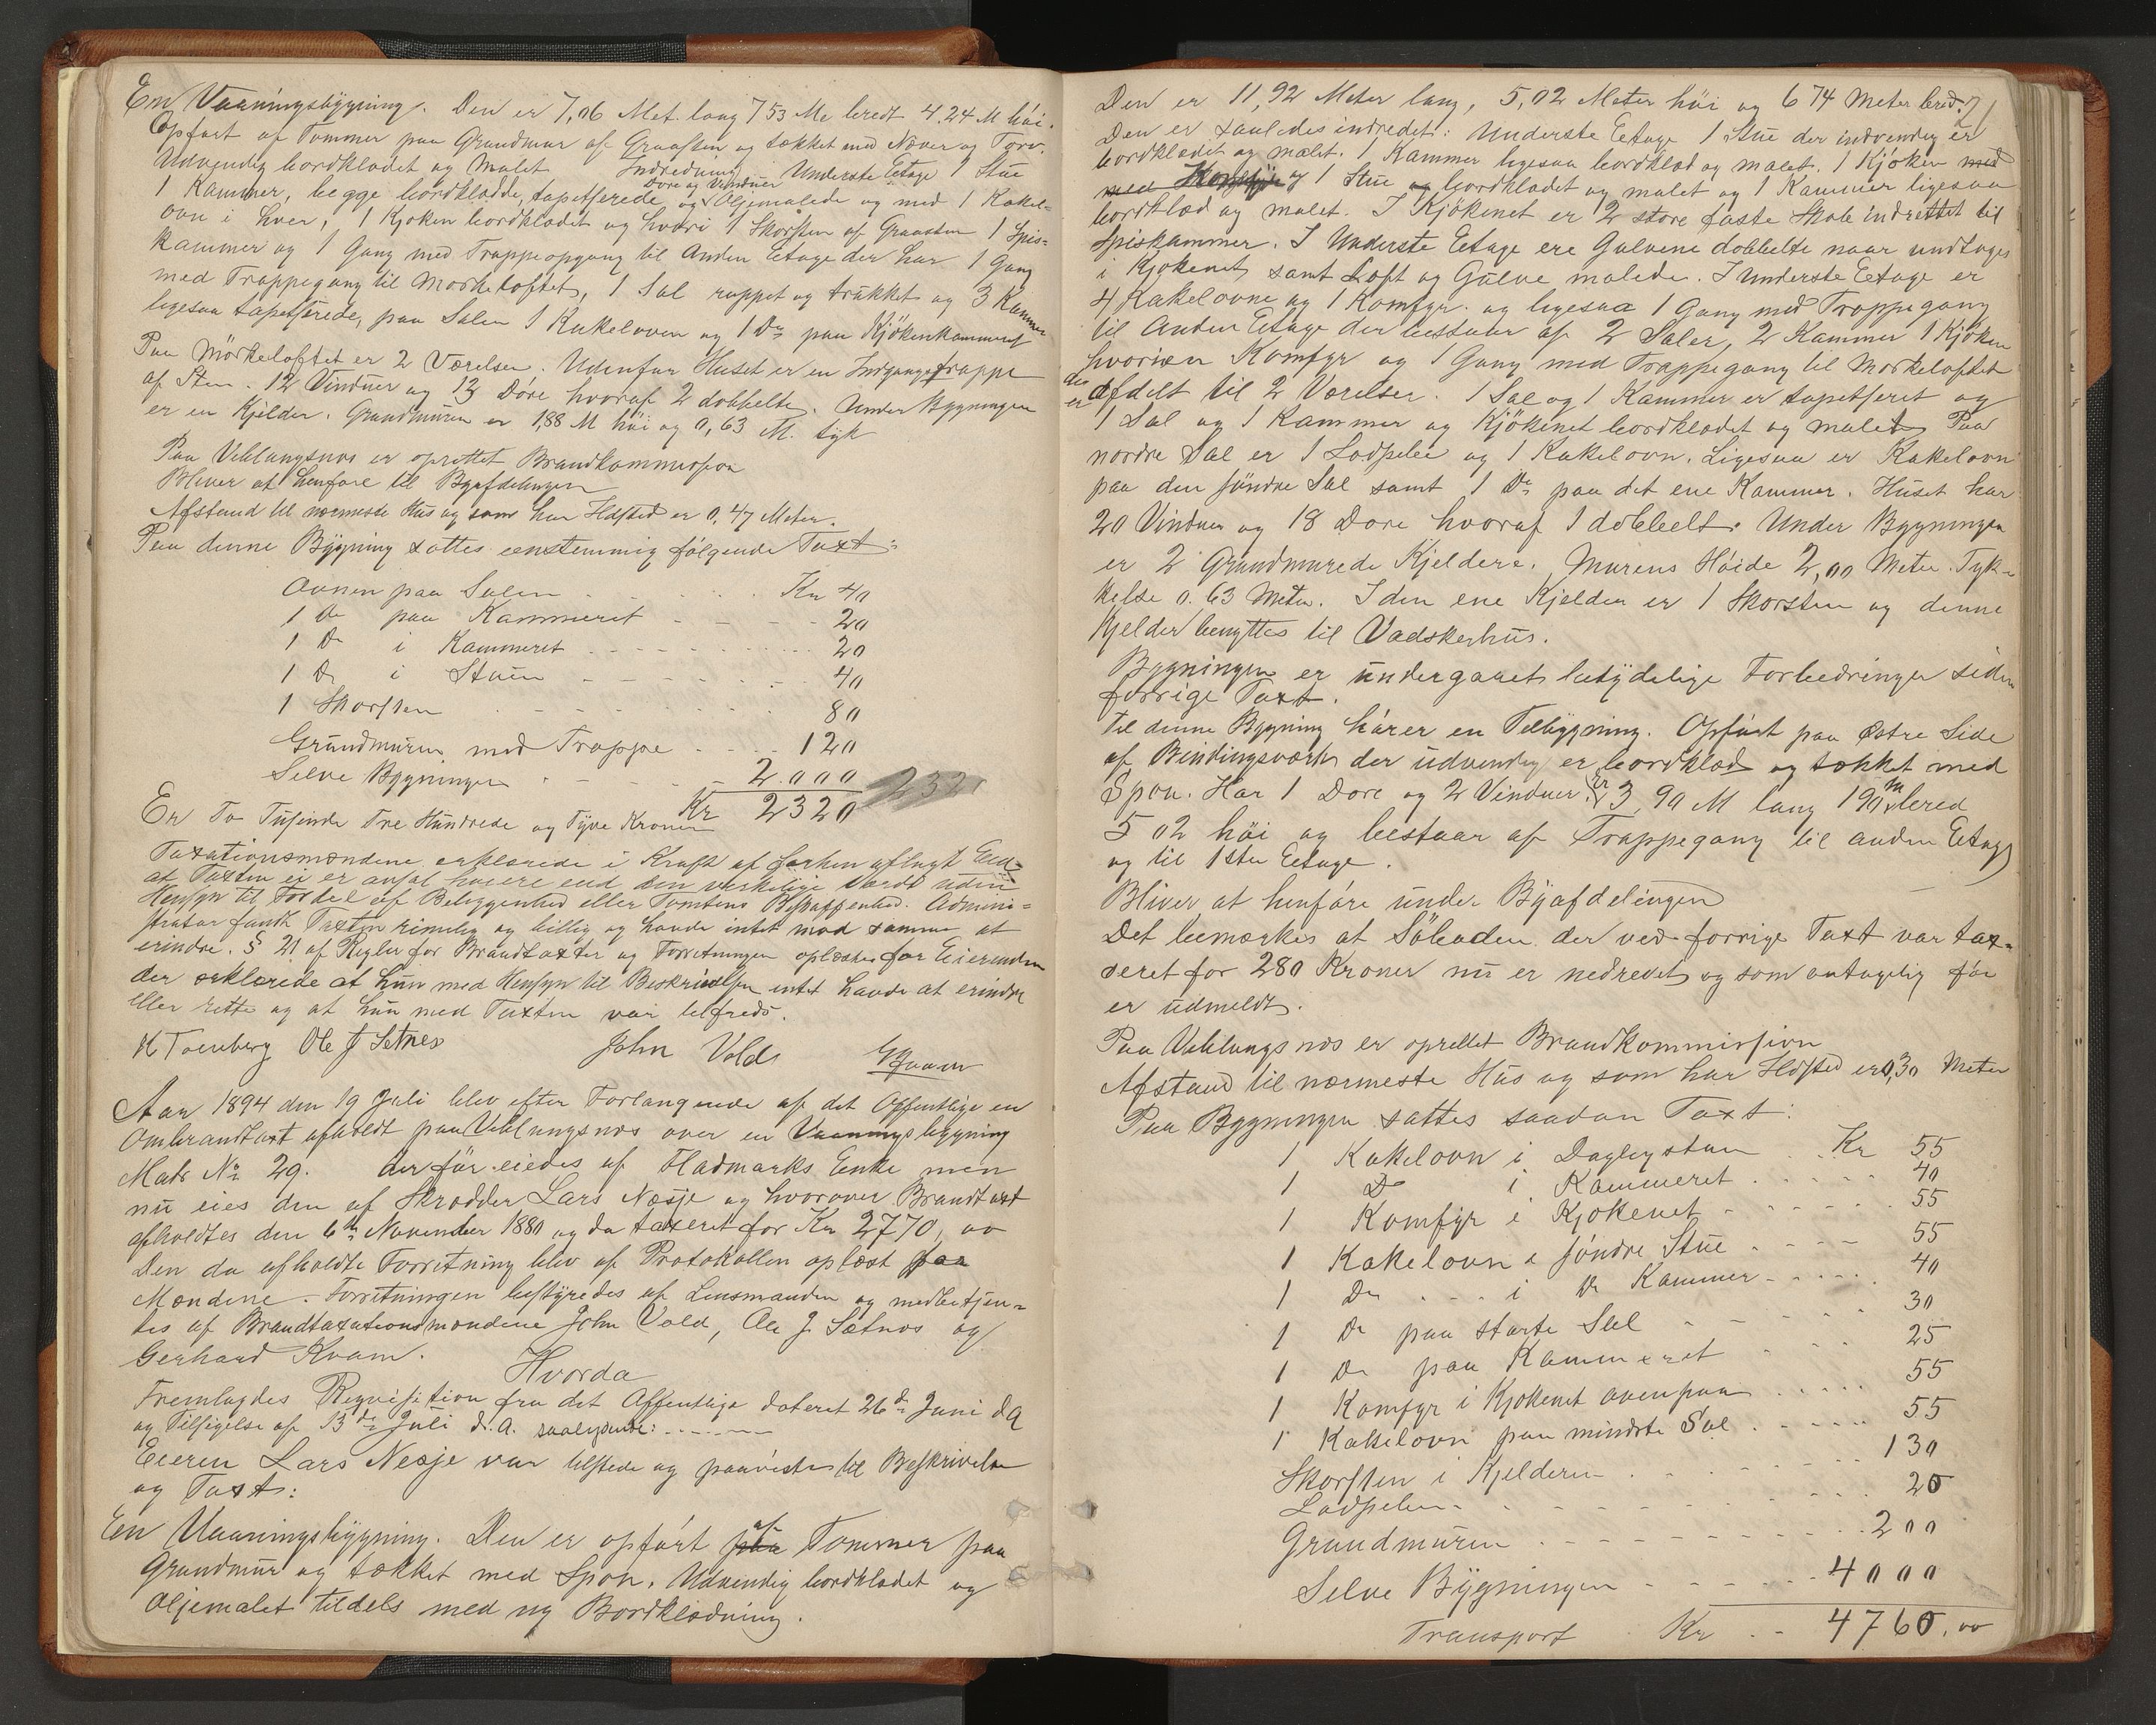 En Vaaningsbygning. Den er 7,06 Met. lang 7 53 Me bredt 4.24 M hói.
Opfórt af Tømmer paa Grundmur af Graasten og tækket med Næver og Torv.
Udvendig bordklædet og Malet Indredning Underste Etage 1 Stue
1 Kammer, begge bordklædde, tapetserede og Dore og Vinduer Oljemalede og med 1 Kakel=
ovn i hver, 1 Kjøken bordklædet og hvori 1 Skorsten af Graasten 1 Spis=
kammer og 1 Gang med Trappeopgang til Anden Etage der har 1 Gang
med Trappegang til Mørkeloftet, 1 Sal rappet og trukket og 3 Kammer
ligesaa tapetserede, paa Salen 1 Kakeloven og 1 Do paa Kjökenkammeret
Paa Mörkeloftet er 2 Værelser. Udenfor Huset er en Indgangstrappe
af Sten. 12 Vinduer og 13 Dóre hvoraf 2 dobbelte. Under Bygningen
er en Kjelder. Grundmuren er 1,88 M hói og 0,63 M. tyk
Paa Veblungsnæs er oprettet Brandkommission
Bliver at henføre til Byafdelingen
Afstand til nærmeste Hus og som har Ildsted er 0,47 Meter.
Paa denne Bygning sattes eenstemmig følgende Taxt:
Ovnen paa Salen Kr 40
1 Do paa Kammeret 20
1 Do i Kammeret 20
1 Do i Stuen 40
1 Skorsten 80
Grundmuren med Trappe 120
Selve Bygningen 2.000 232
Er To Tusinde Tre Hundrede og Tyve Kroner Kr 2320
Taxationsmændene erklærede i Kraft af forhen aflagt Eed
at Taxten ei er ansat høiere end den virkelige Værdi uden
Hensyn til Fordel af Beliggenhed eller Tomtens Beskaffenhed. Admini=
strator fandt Taxten rimelig og billig og havde intet mod samme at
erindre. § 21 af Regler for Brandtaxter og Forretningen oplæstes for Eierinden
der erklærede at hun med Hensyn til Beskrivelsen intet havde at erindre
eller rette og at hun med Taxten var tilfreds.
Ole J Setnes John Vold GKvam
Aar 1894 den 19 Juli blev efter Forlangende af det Offentlige en
Ombrandtaxt afholdt paa Veblungsnæs over en Vaaningsbygning
Matr No 29. der før eiedes af Fladmarks Enke men
nu eies den af Skrædder Lars Næsje og hvorover Brandtaxt
afholdtes den 6te November 1880 og da taxeret for Kr 2770,00
Den da afholdte Forretning blev af Protokollen oplæst for
Mændene. Forretningen bestyredes af Lensmanden og medbetjen=
tes af Brandtaxationsmændene John Vold, Ole J. Sætnæs og
Gerhard Kvam.
Hvorda
Fremlagdes Reqvisition fra det Offentlige dateret 26de Juni d A
og Tilsigelse af 13de Juli d. A. saalydende:
Eieren Lars Nesje var tilstede og paaviste til Beskrivelse
og Taxt:
En Vaaningsbygning. Den er opfórt paa af Tømmer paa
Grundmur og tækket med Spon. Udvendig bordklædet og
Oljemalet tildels med ny Bordklædning.
21
Den er 11,92 Meter lang, 5,02 Meter hói og 6 74 Meter bred.
Den er saaledes indredet: Underste Eetage 1 Stue der indvendig er
bordklædet og malet. 1 Kammer ligesaa bordklæd og malet. 1 Kjöken med
med og 1 Stue og bordklædet og malet og 1 Kammer ligesaa
bordklæd og malet. I Kjökenet er 2 store faste Skabe indrettet til
Spiskammer. I Underste Eetage ere Gulvene dobbelte naar undtages
i Kjøkenet, samt Loft og Gulve malede. I Underste Eetage er
4 Kakelovne og 1 Komfyr og ligesaa 1 Gang med Trappegang
til Anden Eetage der bestaar af 2 Saler, 2 Kammer 1 Kjöken
hvori en Komfyr og 1 Gang med Trappegang til Mørkeloftet
der er afdelt til 2 Værelser. 1 Sal og 1 Kammer er tapetseret og
1 Sal og 1 Kammer og Kjökenet bordklædet og malet. Paa
nordre Sal er 1 Lodpibe og 1 Kakelovn. Ligesaa er Kakelovn
paa den søndre Sal samt 1 Do paa det ene Kammer. Huset har
20 Vinduer og 18 Døre hvoraf 1 dobbelt. Under Bygningen
er 2 Grundmurede Kjeldere. Murens Høide 2,00 Meter. Tyk-
kelse 0.63 Meter. I den ene Kjelder er 1 Skorsten og denne
Kjelder benyttes til Vadskerhus.
Bygningen er undergaaet betydelige Forbedringer siden
forrige Taxt.
Til denne Bygning hórer en Tilbygning. Opført paa Østre Side
af Bindingsværk der udvendig er bordklæd og tækket med
Spon. Har 1 Døre og 2 Vinduer. Er 3,90 M lang 1 90 m bred
5 02 hói og bestaar af Trappegang til anden Etage
og til 1ste Eetage.
Bliver at henfóre under Byafdelingen
Det bemærkes at Söboden der ved forrige Taxt var tax-
eret for 280 Kroner nu er nedrevet og som antagelig før
er udmeldt.
Paa Veblungsnæs er oprettet Brandkommission
Afstand til nærmeste Hus og som har Ildsted er 0,30 Meter
Paa Bygningen sattes saadan Taxt:
1 Kakelovn i Dagligstuen Kr 55
1 Do i Kammeret 40
1 Komfyr i Kjøkenet 55
1 Kakelovn i søndre Stue 55
1 Do i Do Kammer 40
1 Do paa større Sal 30
1 Do paa Kammeret 25
1 Komfyr i Kjøkenet ovenpaa 55
1 Kakelovn paa mindste Sal 55
Skorsten i Kjelderen 130
Lodpiben 20
Grundmuren 200
Selve Bygningen 4000
Transport Kr 4760,00